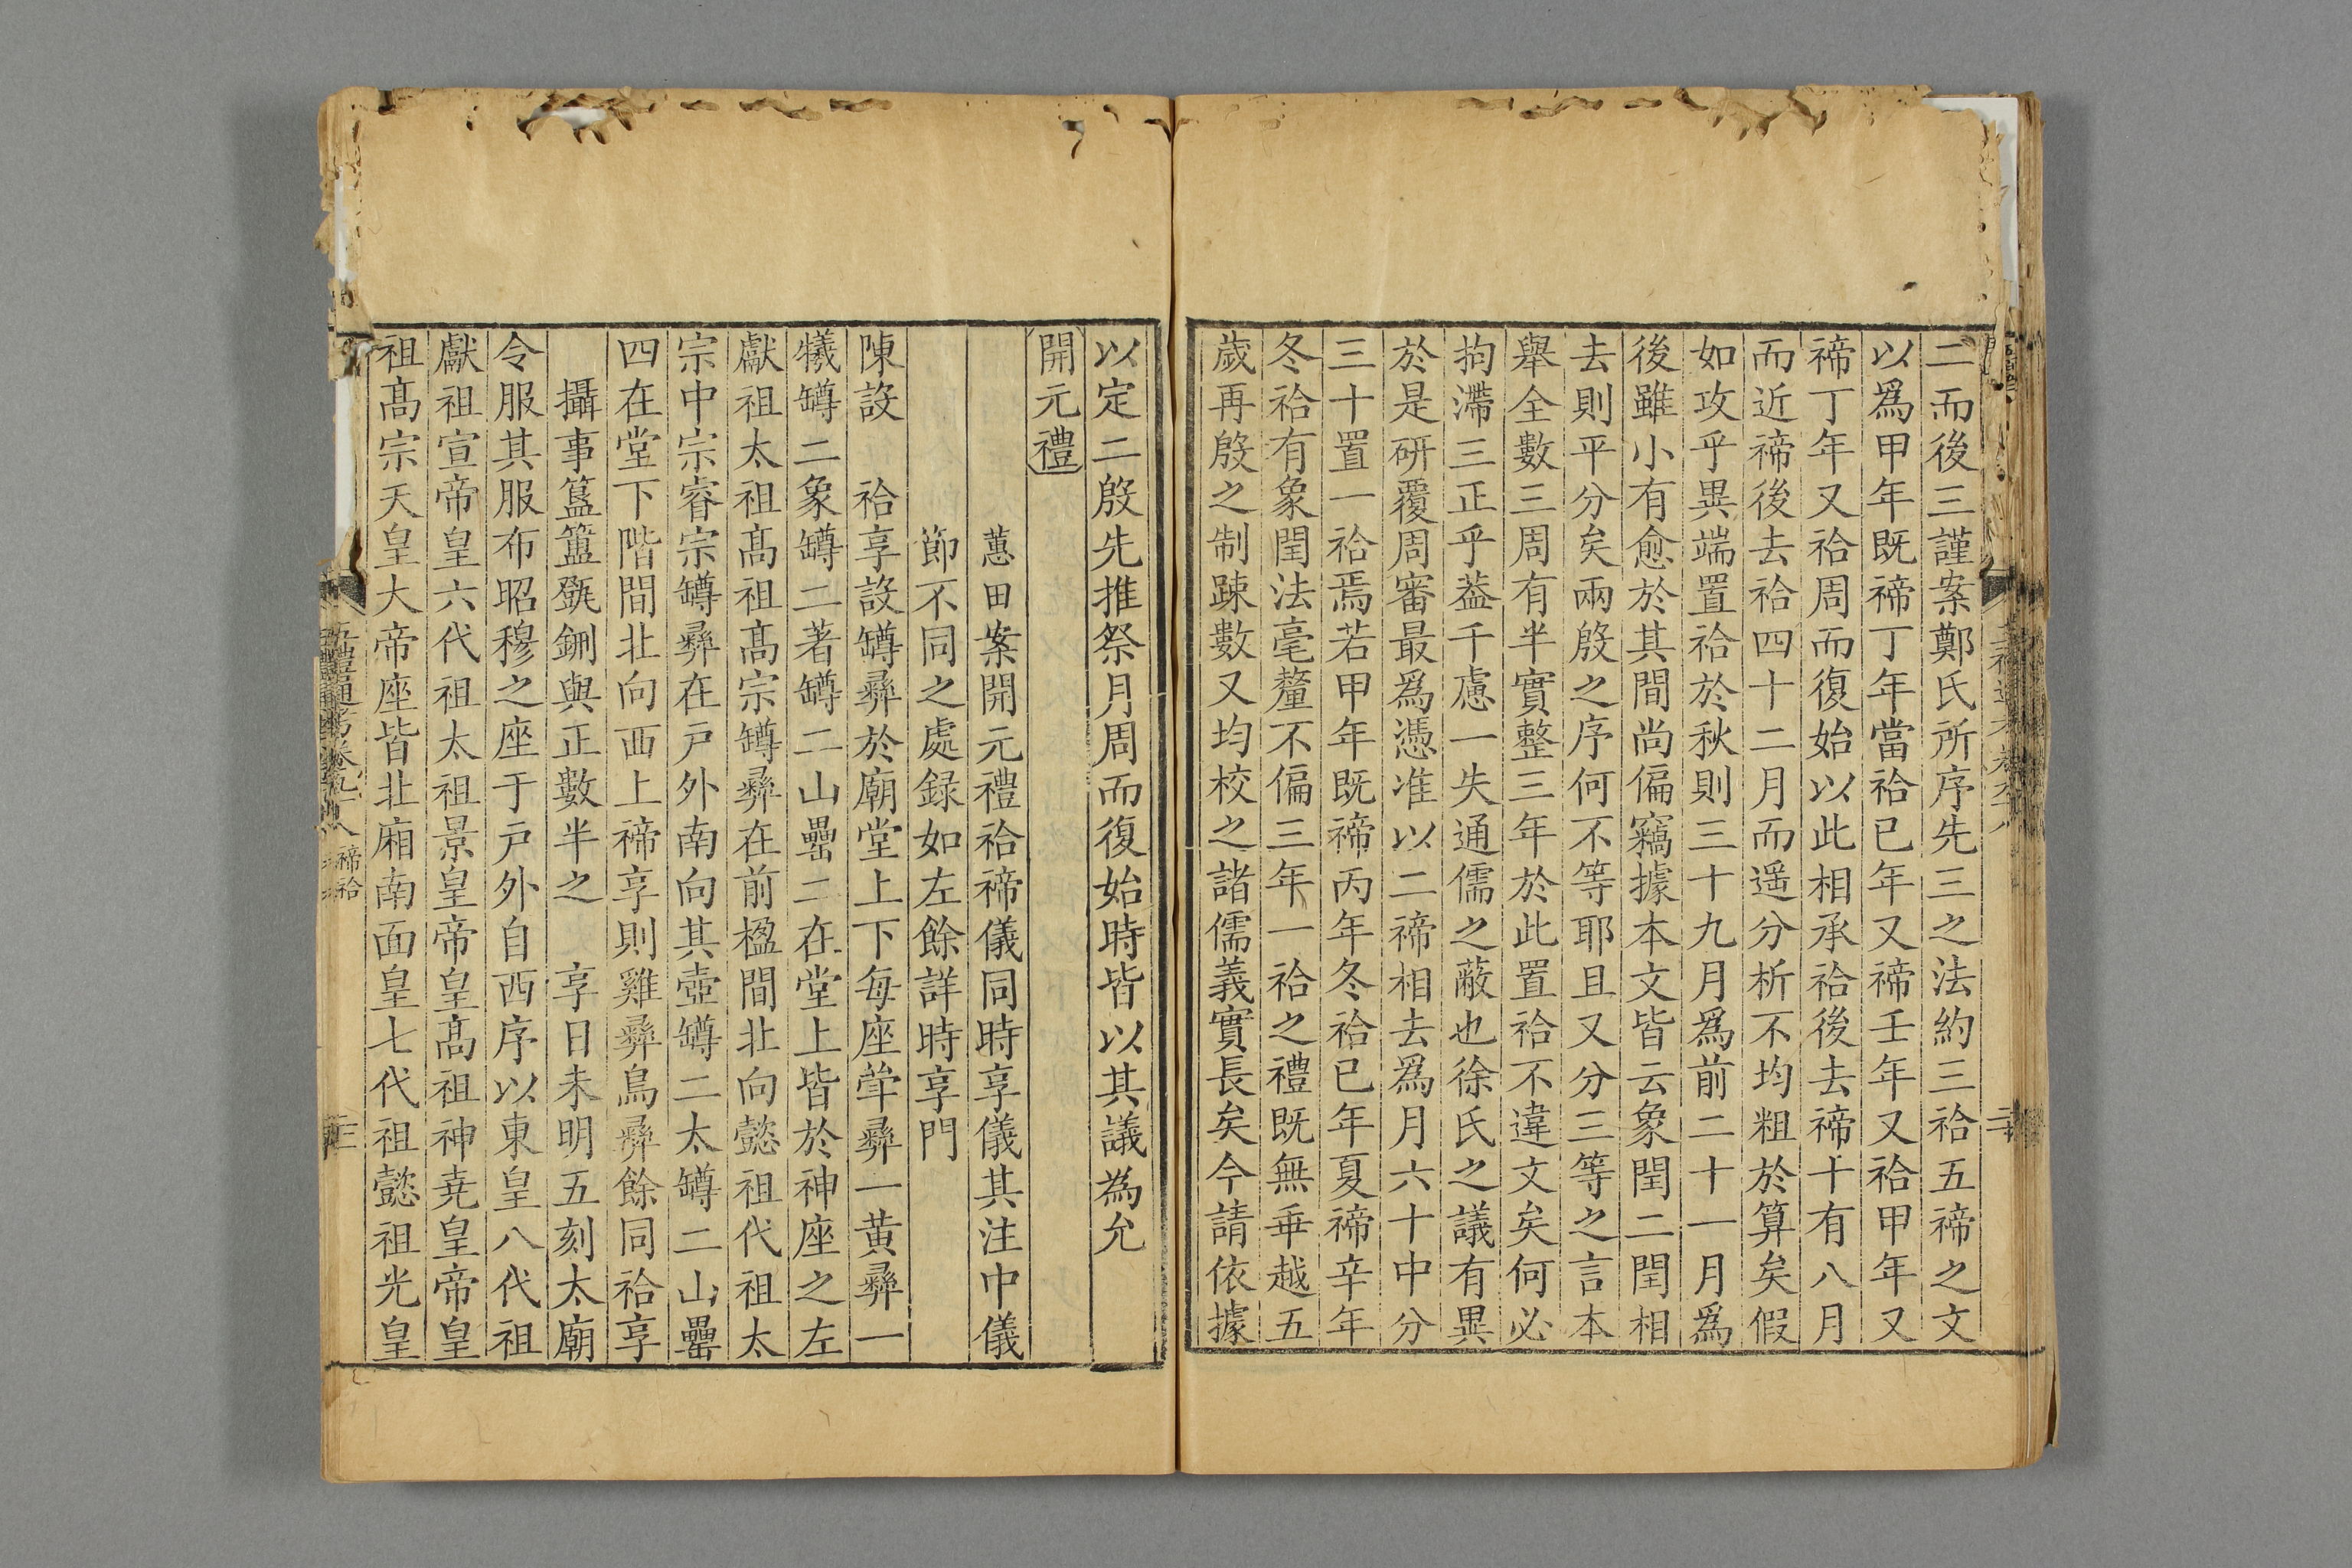 二而後三謹案鄭氏所序先三之法約三祫五禘之文
以爲甲年既禘丁年當祫已年又禘壬年又祫甲年又
禘丁年又祫周而復始以此相承祫後去禘十有八月
而近禘後去祫四十二月而遥分析不均粗於算矣假
如攻乎異端置祫於秋則三十九月爲前二十一月爲
後雖小有愈於其間尚偏竊據本文皆云象閏二閏相
去則平分矣兩殷之序何不等耶且又分三等之言本
舉全數三周有半實整三年於此置祫不違文矣何必
拘滯三正乎葢千慮一失通儒之蔽也徐氏之議有異
於是研覆周審最爲憑准以二禘相去爲月六十中分
三十置一祫焉若甲年既禘丙年冬祫已年夏禘辛年
冬祫有象閏法毫釐不偏三年一祫之禮既無乖越五
歲再殷之制疎數又均校之諸儒義實長矣今請依據
以定二殷先推祭月周而復始時皆以其議為允
開元禮
蕙田案開元禮祫禘儀同時享儀其注中儀
節不同之處録如左餘詳時享門
陳設　祫享設罇彞於廟堂上下每座斝彞一黄彞一
犧罇二象罇二著罇二山罍二在堂上皆於神座之左
獻祖太祖髙祖髙宗罇彞在前楹間北向懿祖代祖太
宗中宗睿宗罇彞在戸外南向其壺罇二太罇二山罍
四在堂下階間北向西上禘享則雞彞鳥彞餘同祫享
攝事簋簠㽅鉶與正數半之　享日未明五刻太廟
令服其服布昭穆之座于戸外自西序以東皇八代祖
獻祖宣帝皇六代祖太祖景皇帝皇髙祖神堯皇帝皇
祖髙宗天皇大帝座皆北廂南面皇七代祖懿祖光皇
五禮通考卷九十八
禘祫